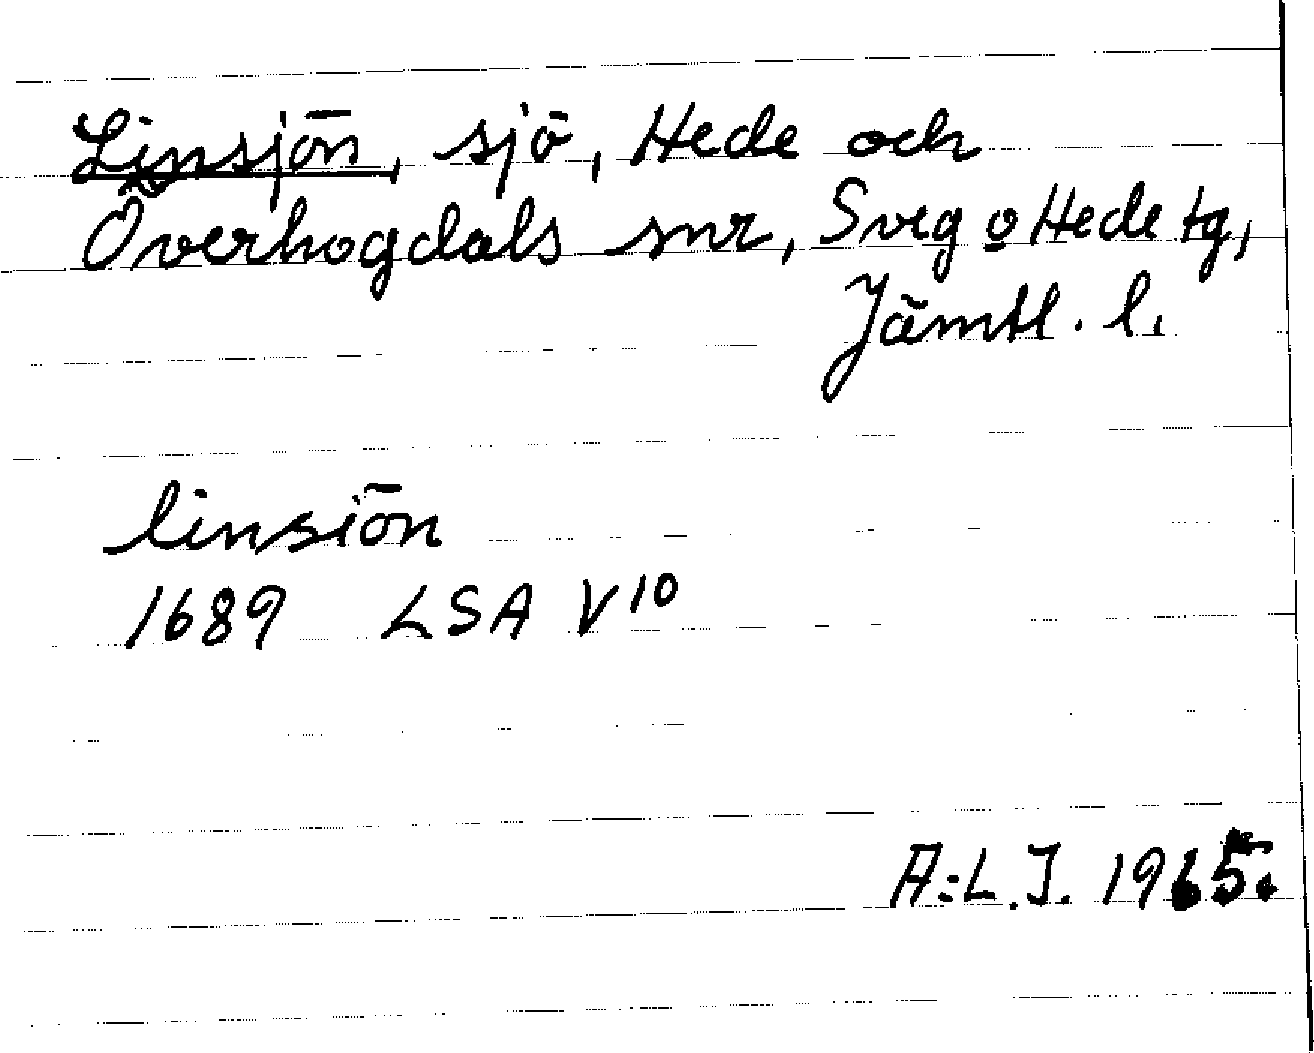 Linsjön, sjö, Hede och
Överhogdals snr, Sveg o Hede tg,
Jämtl. l.
linsiön
1689 LSA V10
A:L.J. 1965.